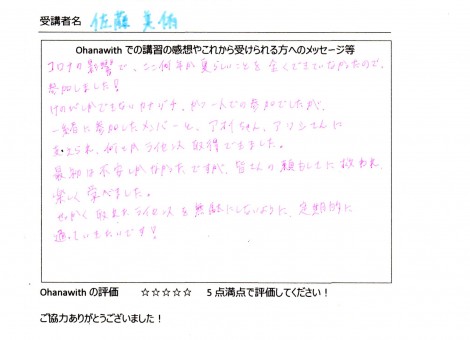 受講者名 佐藤 美侑
Ohanawith での講習の感想やこれから受けられる方へのメッセージ等
コロナの影響で、ここ何年か夏らしいことを全くできていなかったので、
参加しました！
けのびしかできないカナヅチ、かつ一人での参加でしたが、
一緒に参加したメンバーと、アオイちゃん、アリシさんに
支えられ、何とかライセンス取得できました。
最初は不安しかなかったですが、皆さんの顔もしてに救われ、
楽しく学べました。
せっかく取れたライセンスを無駄にしないように、定期的に
通っていきたいです！
Ohanawith の評価 ☆☆☆☆☆ 5 点満点で評価してください！
ご協力ありがとうございました！